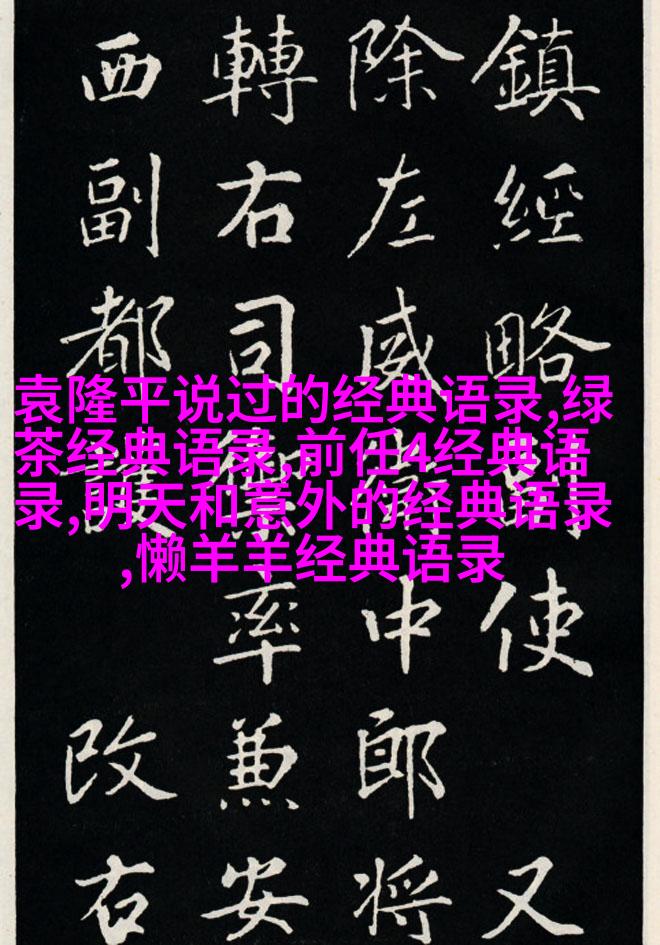 鎮經略副使又
除左威衛中郎将
轉右司禦率兼安
西副都護改右
袁隆平说过的经典语录,绿
茶经典语录,前任4经典语
录,明天和意外的经典语录
,懒羊羊经典语录